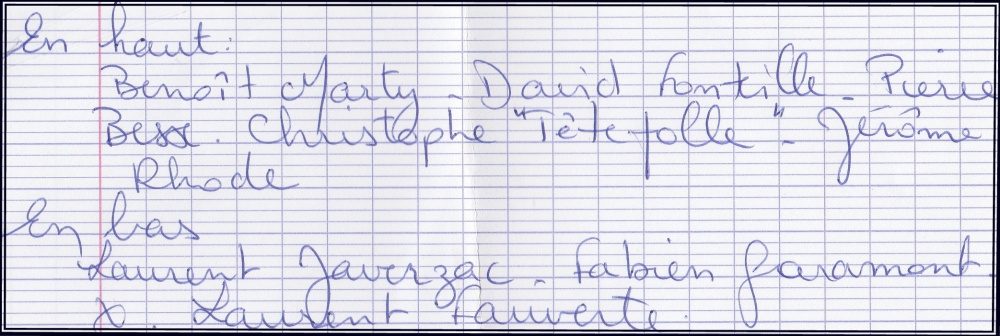 En haut:
Benoît Marty - David Fontille - Pierre
Besse. Christophe "Tête folle" - Jérôme
Rhode
En bas
Laurent Javerzac - Fabien Garamont.
X. Laurent Fauverte.